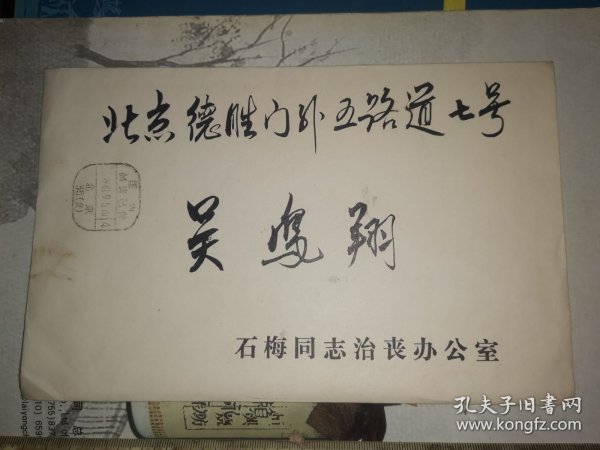 北京德胜门外五路道七号
吴凤翔
石梅同志治丧办公室
孔夫子旧书网
www.kongfz.com